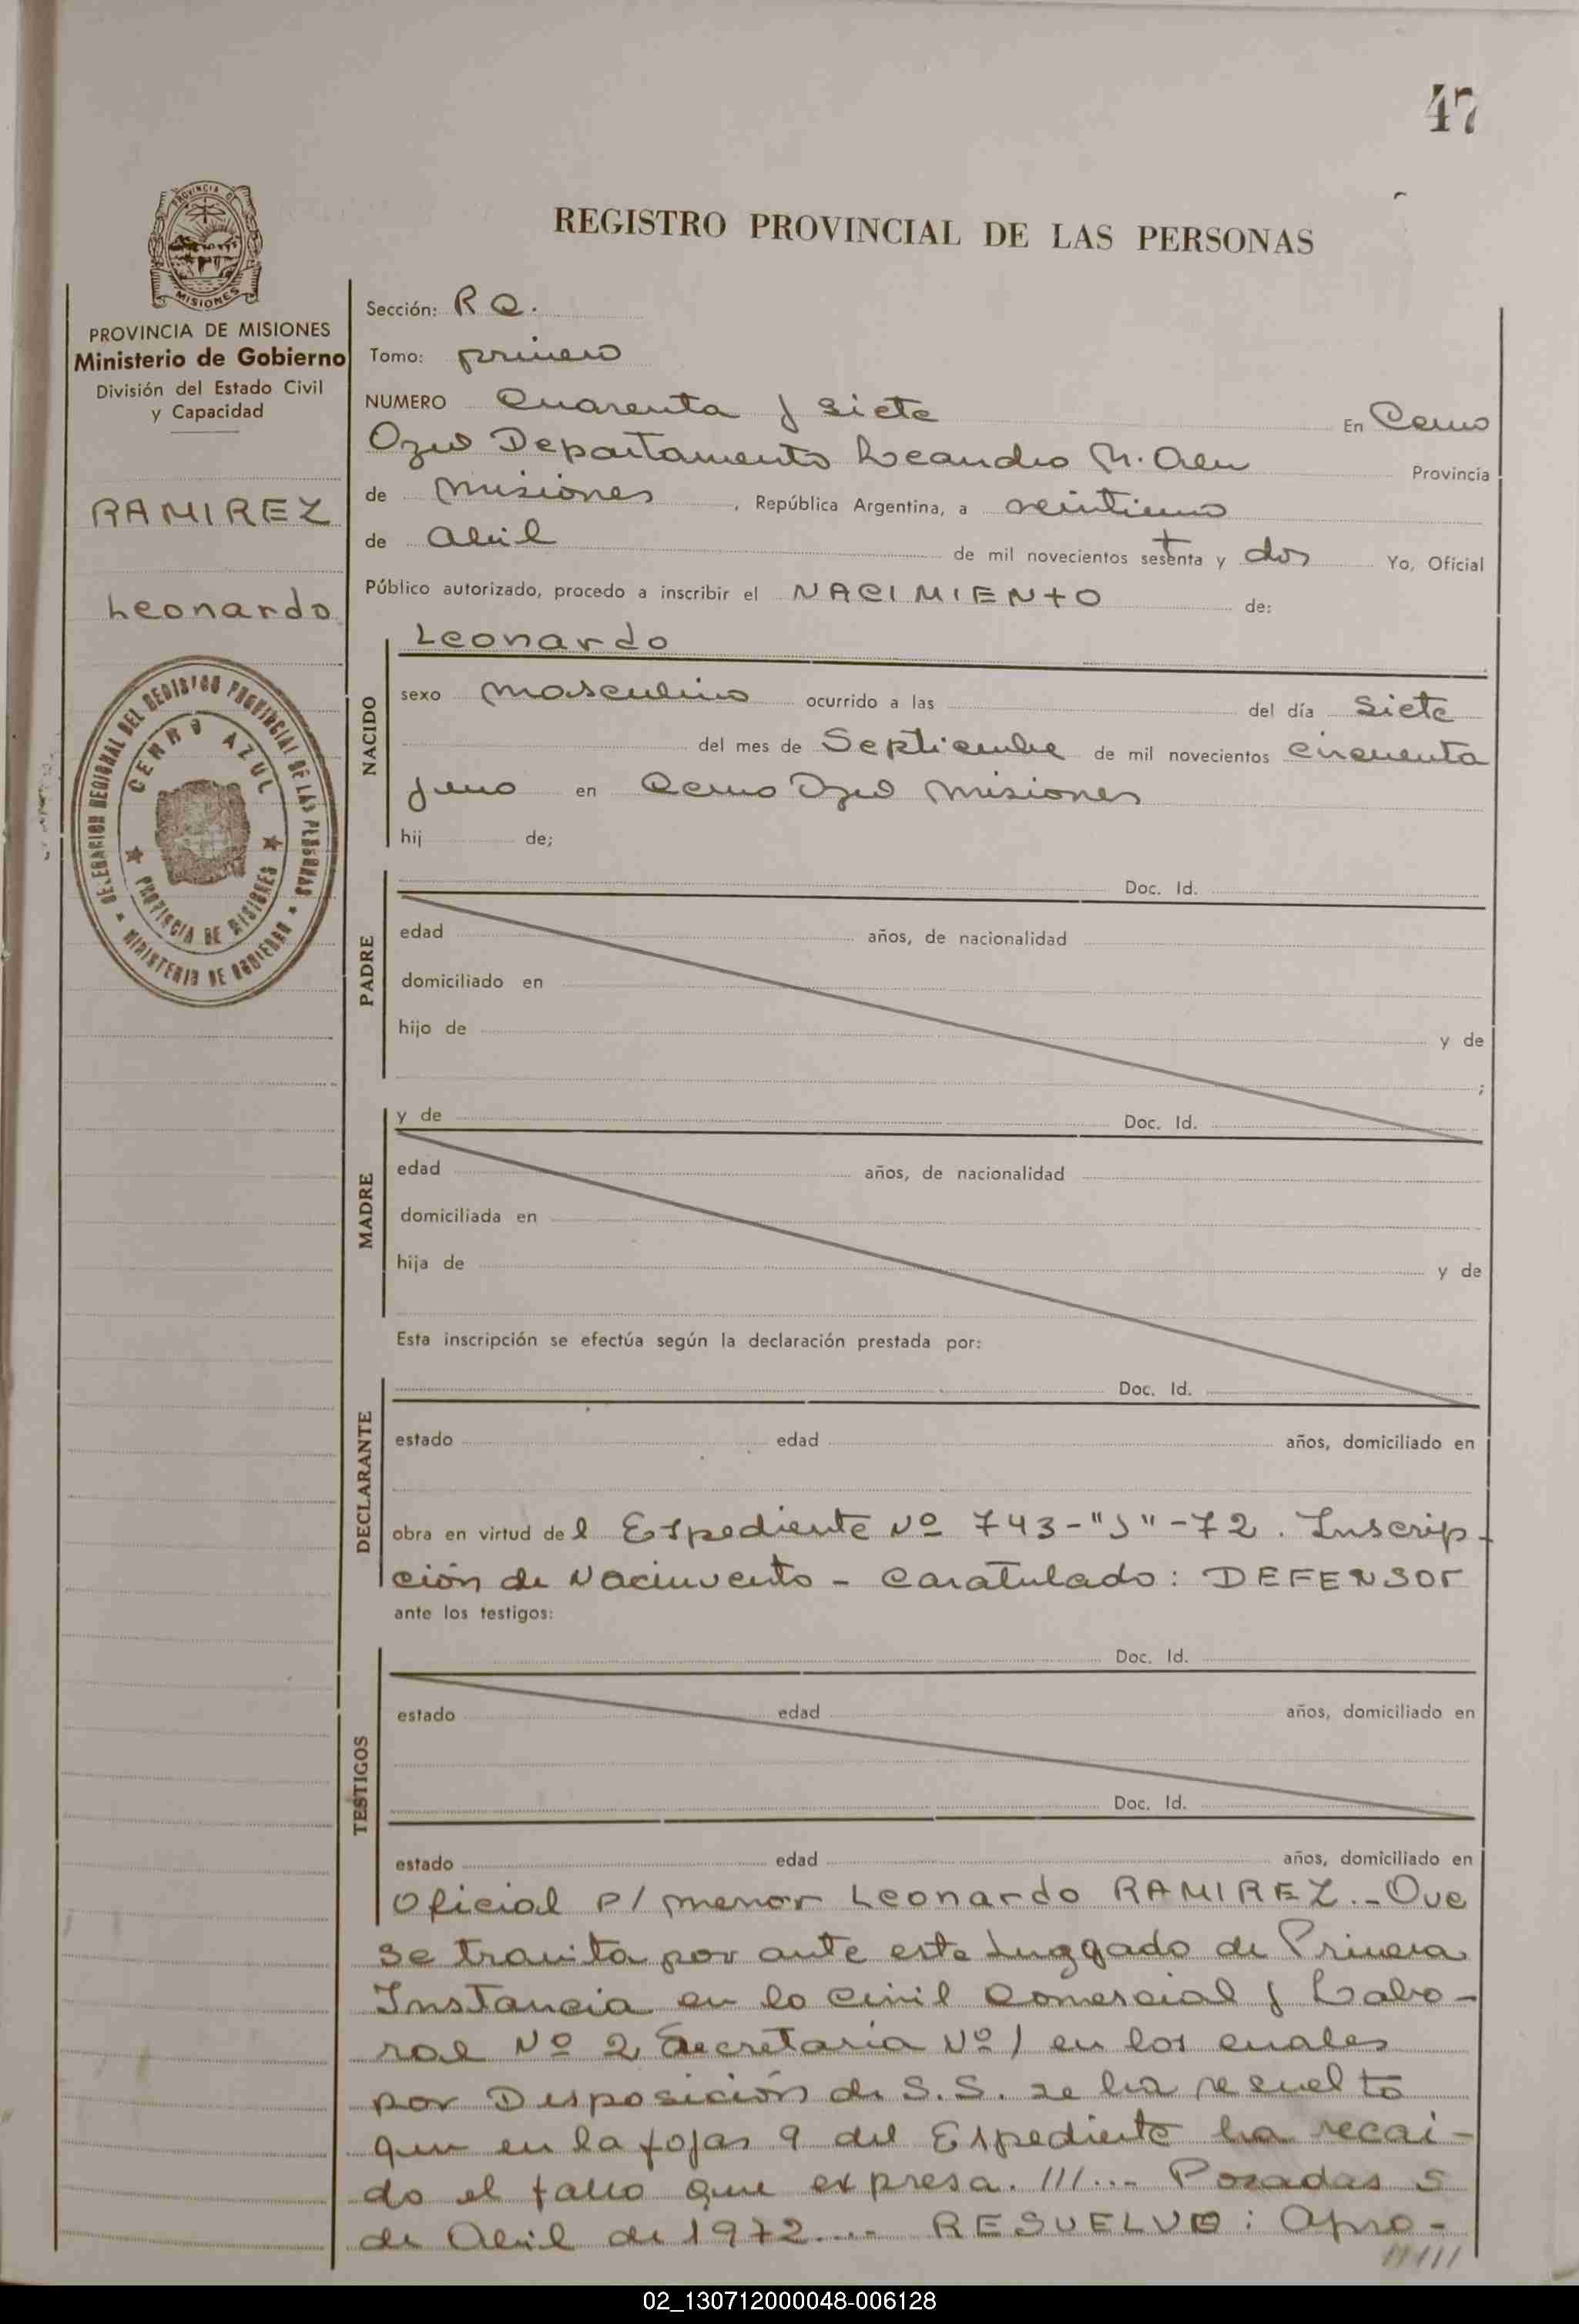 47
PROVINCIA DE
MISIONES
REGISTRO PROVINCIAL DE LAS PERSONAS
PROVINCIA DE MISIONES
Ministerio de Gobierno
División del Estado Civil
y Capacidad
RAMIREZ
Leonardo
DELEGACION REGIONAL DEL REGISTRO PROVINCIAL DE LAS PERSONAS
MINISTERIO DE GOBIERNO
CERRO AZUL
PROVINCIA DE MISIONES
Sección: R Q.
Tomo: primero
NUMERO Cuarenta y siete En Cerro
Azul Departamento Leandro N. Alem Provincia
de Misiones, República Argentina, a veintiuno
de Abril de mil novecientos setenta y dos Yo, Oficial
Público autorizado, procedo a inscribir el NACIMIENTO de:
NACIDO
Leonardo
sexo masculino ocurrido a las del día Siete
del mes de Septiembre de mil novecientos cincuenta
y uno en Cerro Azul Misiones
hij de;
PADRE
Doc. Id.
edad años, de nacionalidad
domiciliado en
hijo de y de
;
MADRE
y de Doc. Id.
edad años, de nacionalidad
domiciliada en
hija de y de
Esta inscripción se efectúa según la declaración prestada por:
DECLARANTE
Doc. Id.
estado edad años, domiciliado en
obra en virtud del Expediente Nº 743-"J"-72. Inscrip-
ción de Nacimiento - Caratulado: DEFENSOr
ante los testigos:
TESTIGOS
Doc. Id.
estado edad años, domiciliado en
Doc. Id.
estado edad años, domiciliado en
Oficial p/ menor Leonardo RAMIREZ.- Que
se tramita por ante este Juzgado de Primera
Instancia en lo Civil Comercial y Labo-
ral Nº 2 Secretaria Nº 1 en los cuales
por Disposición de S.S. se ha resuelto
que en la fojas 9 del Expediente ha recai-
do el fallo que expresa. ///... Posadas 5
de Abril de 1972.... RESUELVO: Apro-
/////
02_130712000048-006128